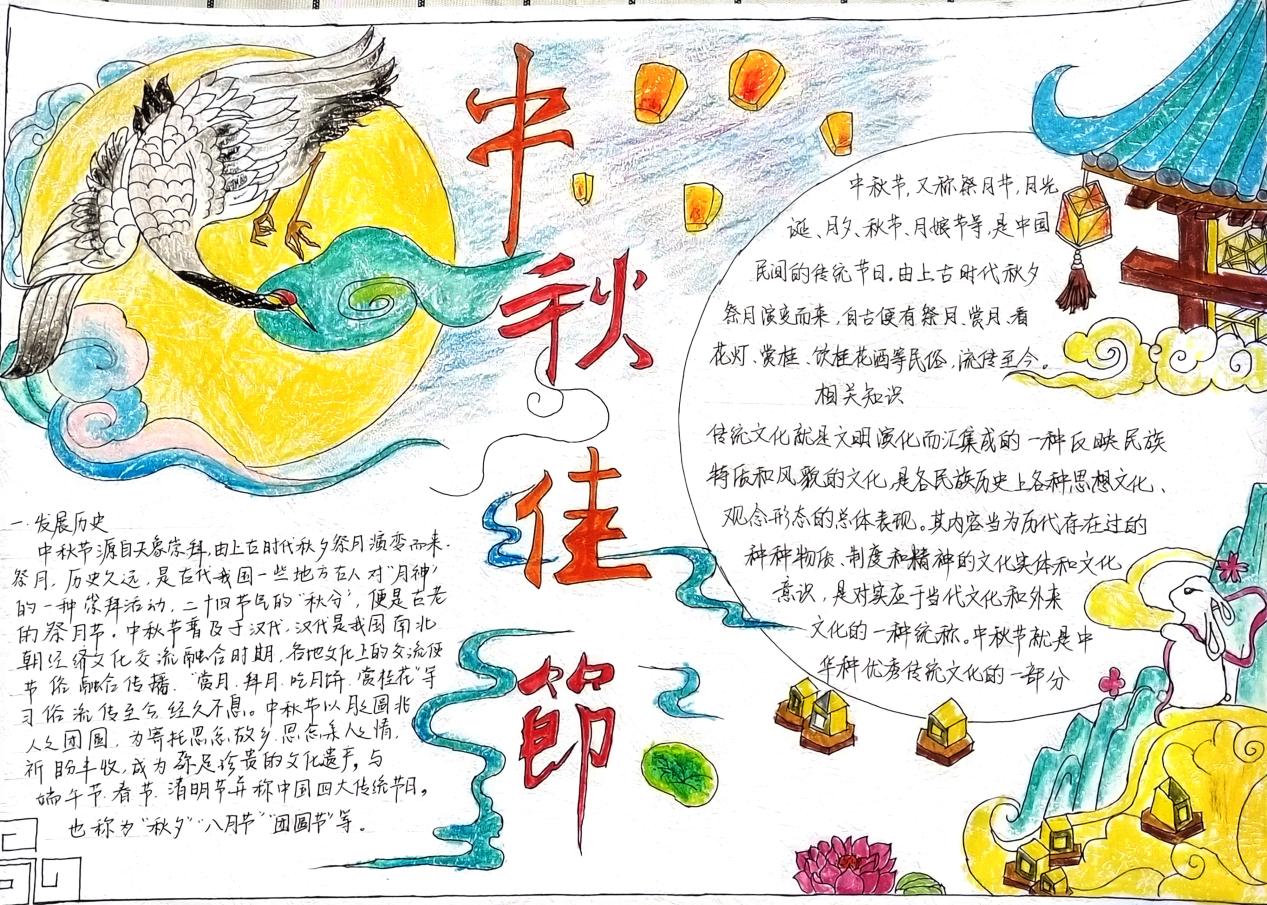 中秋佳節
中秋节,又称祭月节,月光
诞、月夕、秋节、月娘节等,是中国
民间的传统节日。由上古时代秋夕
祭月演变而来,自古便有祭月、赏月、看
花灯、赏桂、饮桂花酒等民俗,流传至今。
相关知识
传统文化就是文明演化而汇集成的一种反映民族
特质和风貌的文化,是各民族历史上各种思想文化、
观念形态的总体表现。其内容当为历代存在过的
种种物质、制度和精神的文化实体和文化
意识,是对实应于当代文化和外来
文化的一种统称。中秋节就是中
华种优秀传统文化的一部分
一.发展历史
中秋节源自天象崇拜,由上古时代秋夕祭月演变而来.
祭月,历史久远,是古代我国一些地方古人对"月神"
的一种崇拜活动,二十四节气的"秋分",便是古老
的祭月节。中秋节普及于汉代,汉代是我国南北
朝经济文化交流融合时期,各地文化上的交流使
节俗融合传播."赏月.拜月.吃月饼.赏桂花"等
习俗流传至今,经久不息。中秋节以月之圆兆
人之团圆,为寄托思念故乡,思念亲人之情,
祈盼丰收,成为弥足珍贵的文化遗产,与
端午节.春节.清明节并称中国四大传统节日。
也称为"秋夕""八月节""团圆节"等。